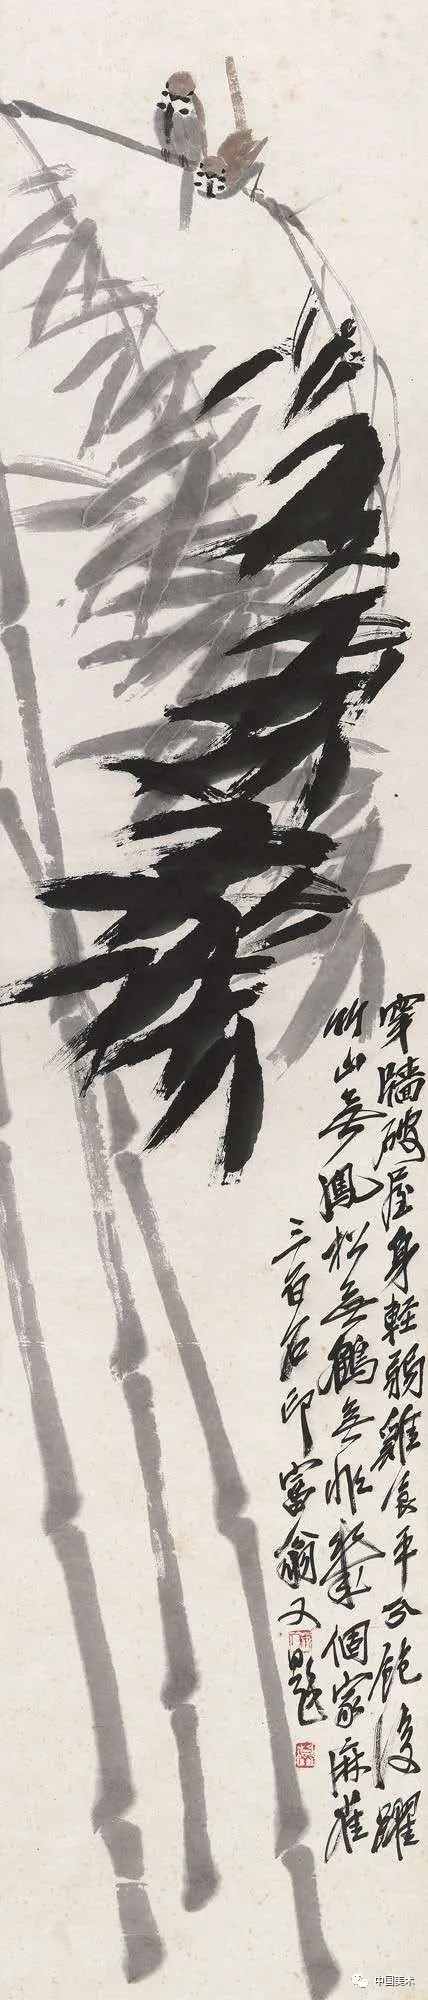 穿牆破屋身輕弱雞食平分飽後躍
竹山無鳳松無鶴無非幾個家麻雀
三百石印富翁又題
中国美术